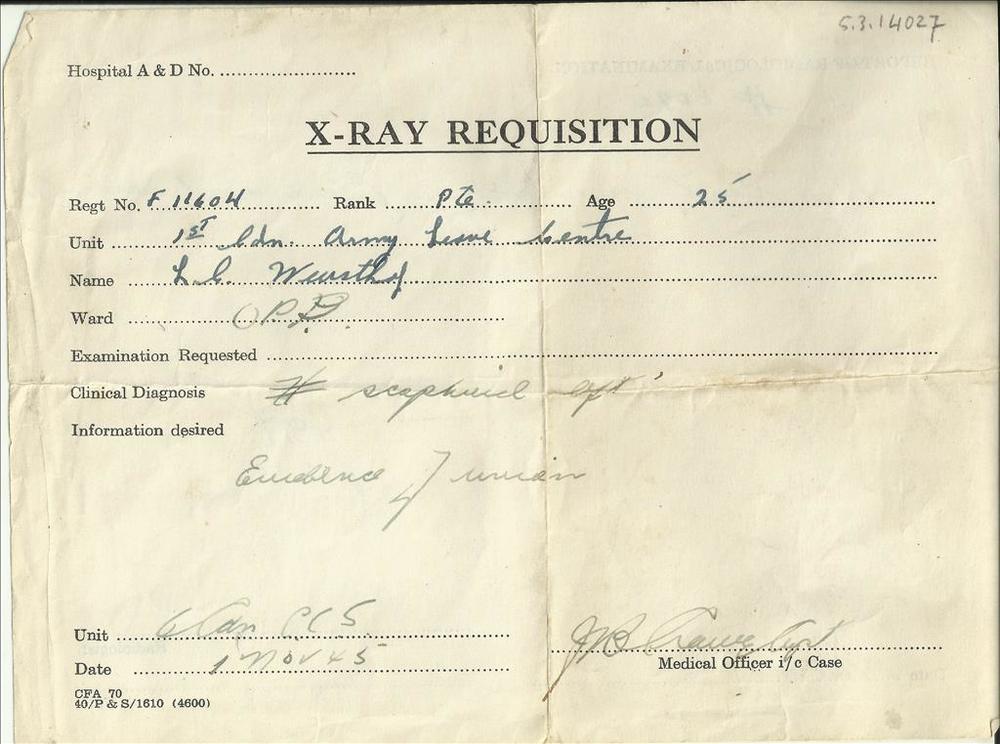 5.3.14027
Hospital A & D No. ........................
X-RAY REQUISITION
Regt No. F 11604 Rank Pte. Age 25
Unit 1st Cdn. Army Leave Centre
Name L. C.
Ward OPD
Examination Requested
Clinical Diagnosis # scaphoid left
Information desired
Evidence of union
Unit 6 Cdn CCS
Date 1 Nov 45
Medical Officer i/c Case
CFA 70
40/P & S/1610 (4600)